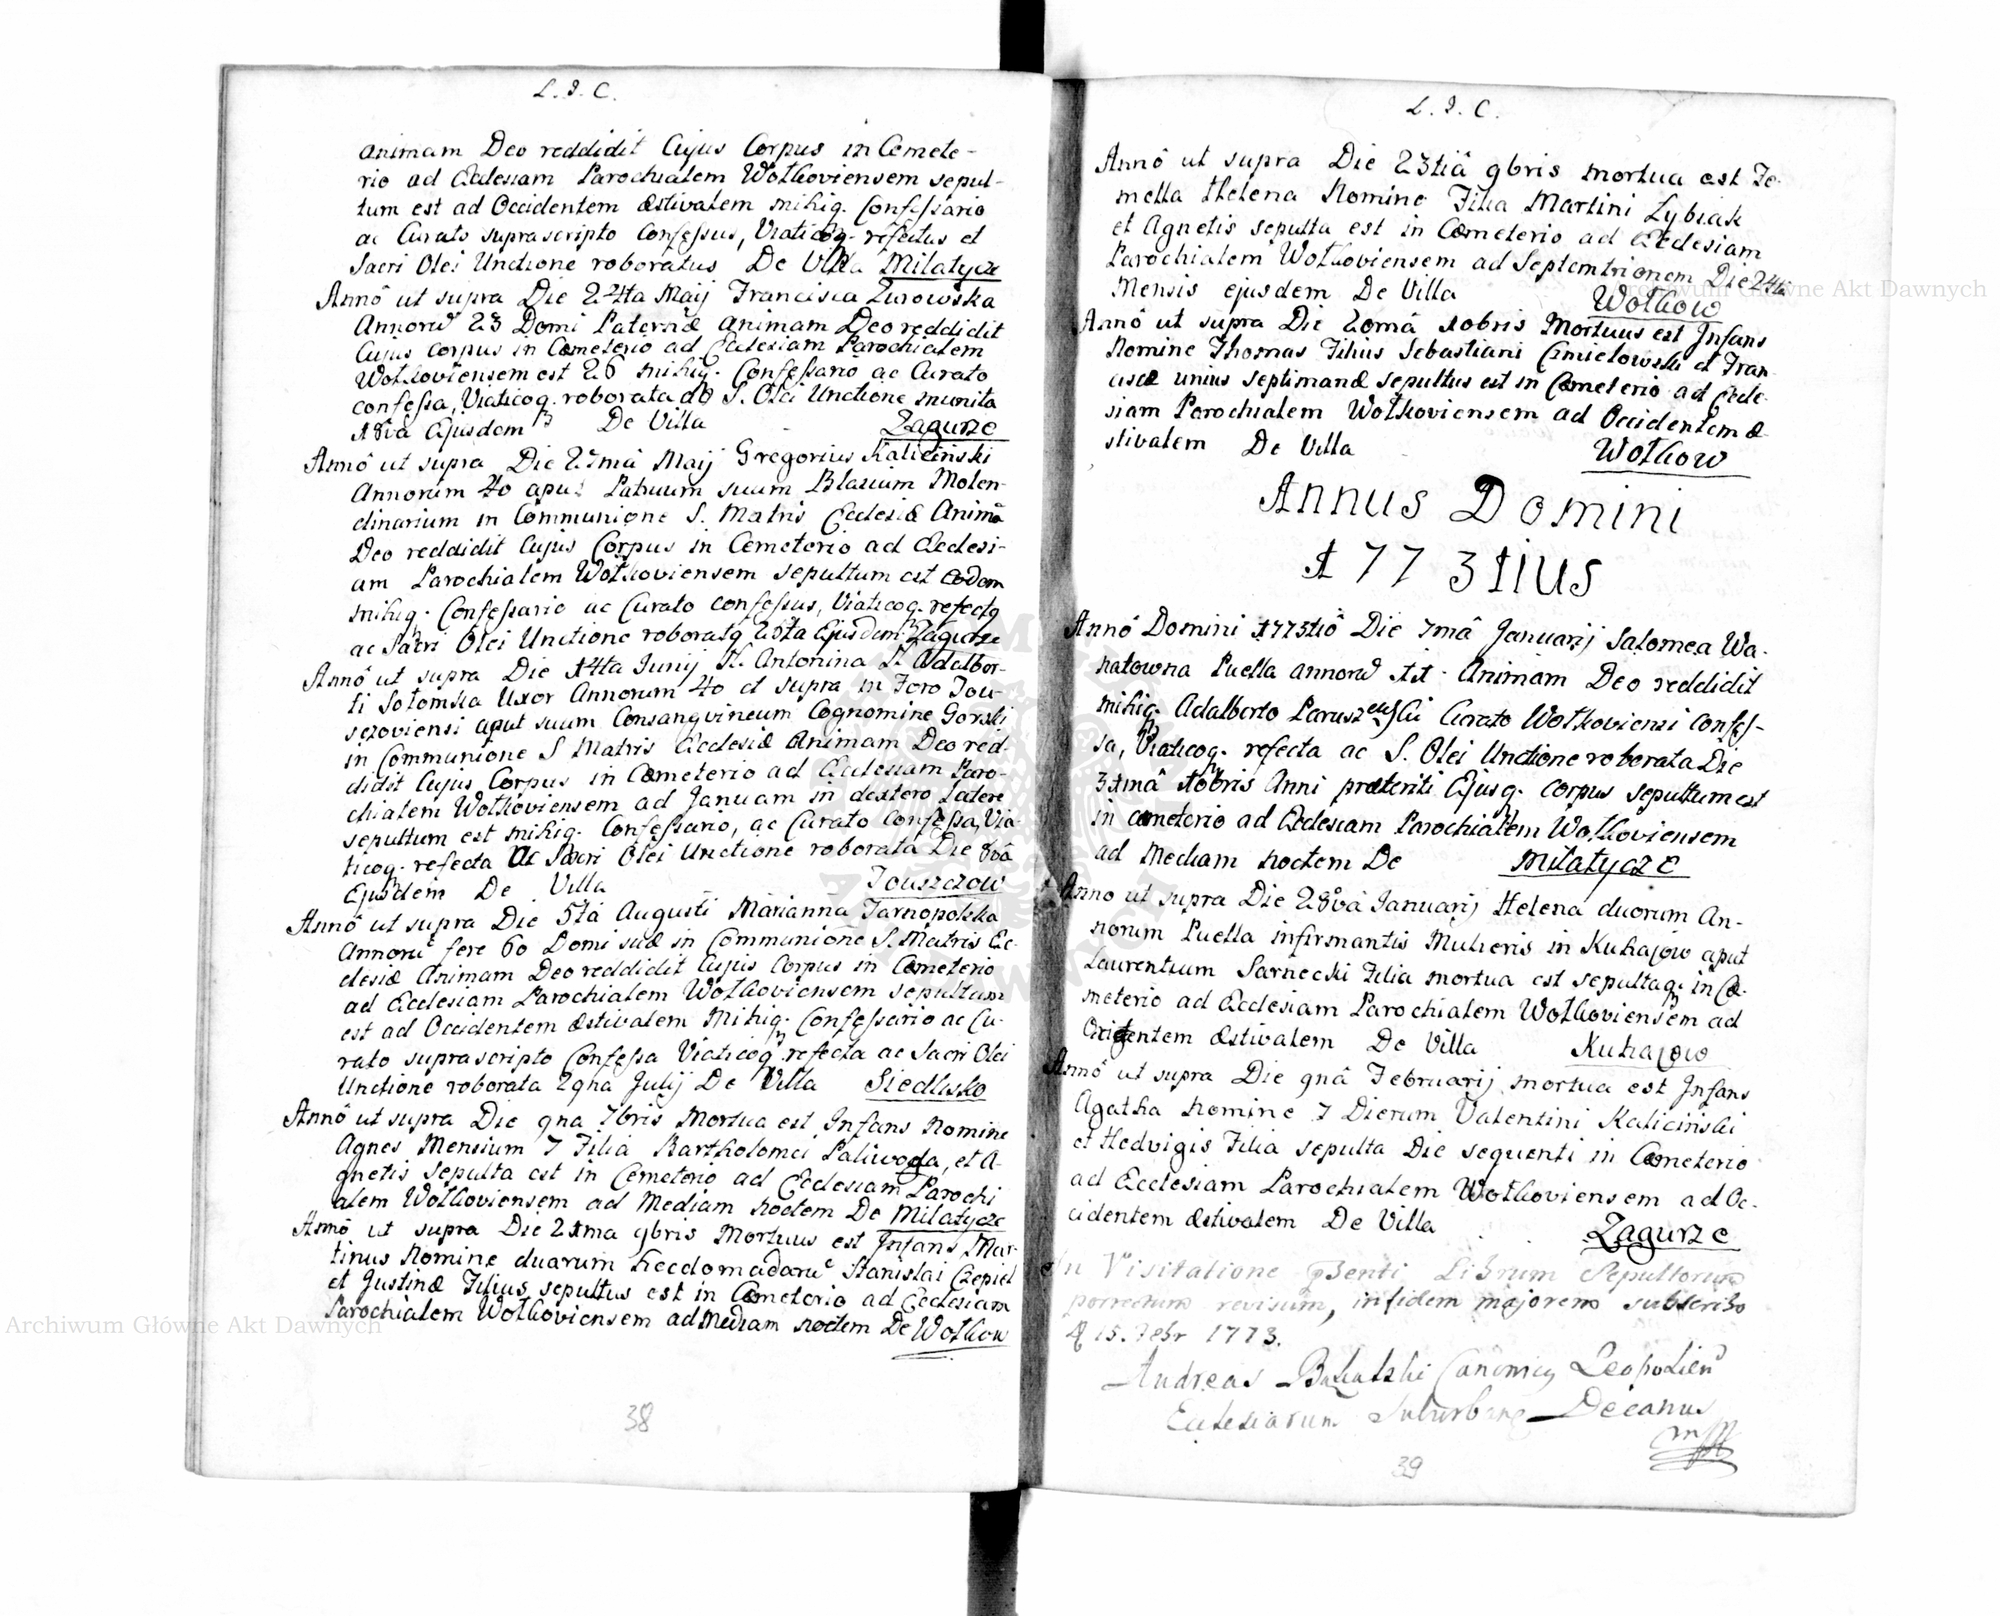 L. J. C.
animam Deo reddidit Cujus Corpus in Cemete-
rio ad Ecclesiam Parochialem Wołkoviensem sepul-
tum est ad Occidentem Æstivalem mihiq. Confessario
ac Curato suprascripto Confessus, Viaticoq. refectus et
Sacri Olei Unctione roboratus De Villa Milatycze
Annô ut supra Die 24ta Maij Francisca Zurowska
Annorũ 23 Domi Paternæ animam Deo reddidit
Cujus corpus in Cœmeterio ad Ecclesiam Parochialem
Wołkoviensem est 26 mihiq. Confessario ac Curato
confessa, Viaticoq. roborata S. Olei Unctione munita
18va Ejusdem De Villa Zagurze
Annô ut supra Die 27mâ Maij Gregorius Kaliciński
Annorum 40 apud Patruum suum Blasium Molen-
dinarium in Communione S. Matris Ecclesiæ Animã
Deo reddidit Cujus Corpus in Cemeterio ad Ecclesi-
am Parochialem Wołkoviensem sepultum est eodem
mihiq. Confessario ac Curato confessus, Viaticoq. refectq
ac Sacri Olei Unctione roboratq 25ta Ejusdem Zagurze
Annô ut supra Die 14ta Junij Antonina Adalber-
ti Sołomska Uxor Annorum 40 et supra in Foro Tou-
sczoviensi aput suum Consangvineum Cognomine Gorski
in Communione S Matris Ecclesiæ Animam Deo red-
didit Cujus Corpus in Cœmeterio ad Ecclesiam Paro-
chialem Wołkoviensem ad Januam in dextero Latere
sepultum est mihiq. Confessario, ac Curato Confessa, Via-
ticoq. refecta ac Sacri Olei Unctione roborata Die 8vâ
Ejusdem De Villa Touszczow
Annô ut supra Die 5tâ Augusti Marianna Tarnopolska
Annorũ fere 60 Domi suæ in Communione S. Matris Ec-
clesiæ Animam Deo reddidit Cujus Corpus in Cœmeterio
ad Ecclesiam Parochialem Wołkoviensem sepultum
est ad Occidentem Æstivalem Mihiq. Confessario ac Cu-
rato suprascripto Confessa Viaticoq. refecta ac Sacri Olei
Unctione roborata 29na Julij De Villa Siedlisko
Annô ut supra Die 9na 7bris Mortua est Infans Nomine
Agnes Mensium 7 Filia Bartholomei Paliwoda, et A-
gnetis sepulta est in Cemeterio ad Ecclesiam Parochi
alem Wołkoviensem ad Mediam noctem De Milatycze
Annô ut supra Die 21ma 9bris Mortuus est Infans Mar-
tinus Nomine duarum hecdomadarũ Stanislai Czepiel
et Justinæ Filius sepultus est in Cœmeterio ad Ecclesiam
Parochialem Wołkoviensem ad Mediam noctem De Wołkow
38
L. J. C.
Annô ut supra Die 23tiâ 9bris mortua est Fe-
mella Helena Nomine Filia Martini Lybiak
et Agnetis sepulta est in Cœmeterio ad Ecclesiam
Parochialem Wołkoviensem ad Septemtrionem Die 24ta
Mensis ejusdem De Villa Wołkow
Annô ut supra Die 20mâ Xobris Mortuus est Infans
Nomine Thomas Filius Sebastiani Cmielowski et Fran-
ciscæ unius septimanæ sepultus est in Cœmeterio ad Eccle-
siam Parochialem Wołkoviensem ad Occidentem Æ-
stivalem De Villa Wołkow
Annus Domini
1773tius
Annô Domini 1773tiô Die 7mâ Januarij Salomea Wa-
natowna Puella annorũ 11. Animam Deo reddidit
mihiq. Adalberto Paruszewski Curato Wołkoviensi confes-
sa, Viaticoq. refecta ac S. Olei Unctione roborata Die
31mâ Xobris Anni præteriti Ejusq. corpus sepultum est
in cœmeterio ad Ecclesiam Parochialem Wołkoviensem
ad Mediam noctem De Milatycze
Anno ut supra Die 28vâ Januarij Helena duorum An-
norum Puella infirmantis Mulieris in Kuhajow aput
Laurentium Sarnecki Filia mortua est sepultaq. in Cœ-
meterio ad Ecclesiam Parochialem Wołkoviensem ad
Orientem Æstivalem De Villa Kuhajow
Annô ut supra Die 9nâ Februarij mortua est Infans
Agatha nomine 7 Dierum Valentini Kaliciński
et Hedvigis Filia sepulta Die sequenti in Cœmeterio
ad Ecclesiam Parochialem Wołkoviensem ad Oc-
cidentem Æstivalem De Villa Zagurze
In Visitatione pśenti Librum Sepultorum
porrectum revisum, in fidem majorem subscribo
15. Febr 1773.
Andreas Canonicq Leopolien
Ecclesiarum Suburbanq Decanus
mp
39
Archiwum Główne Akt Dawnych
Archiwum Główne Akt Dawnych